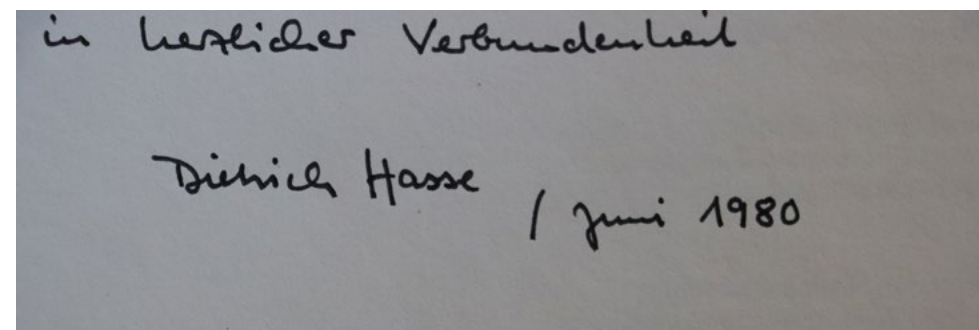 in herzlicher Verbundenheit
Dietrich Hasse
/ Juni 1980